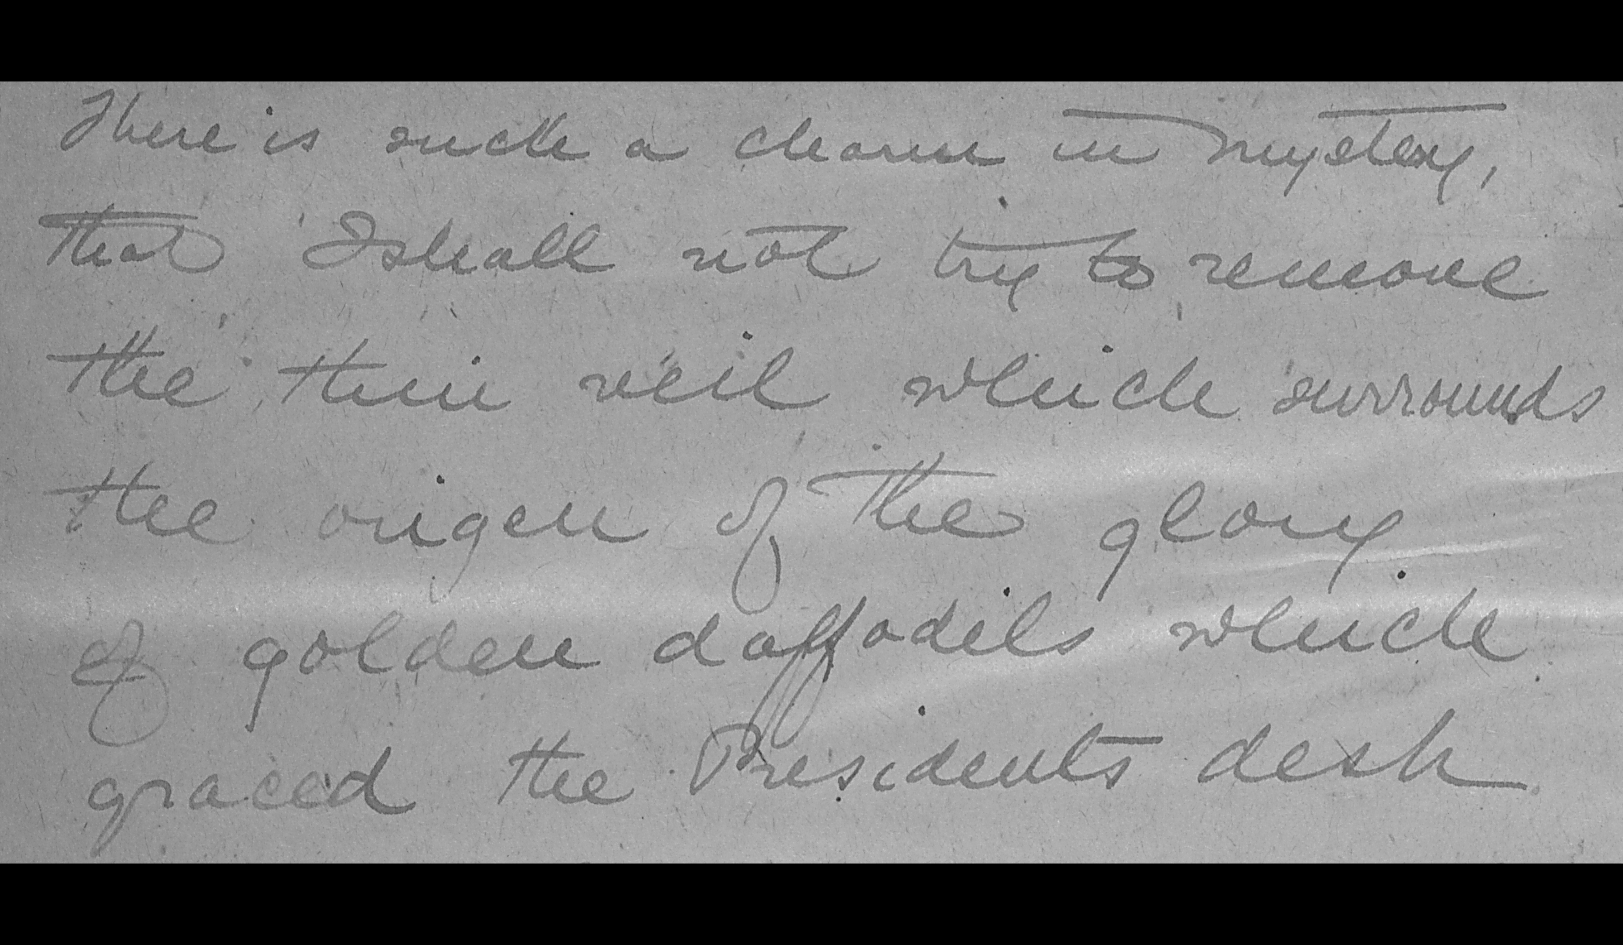 There is such a charm in mystery,
that I shall not try to remove
the thin veil which surrounds
the origen of the glory
of golden daffodils which
graced the Presidents desk